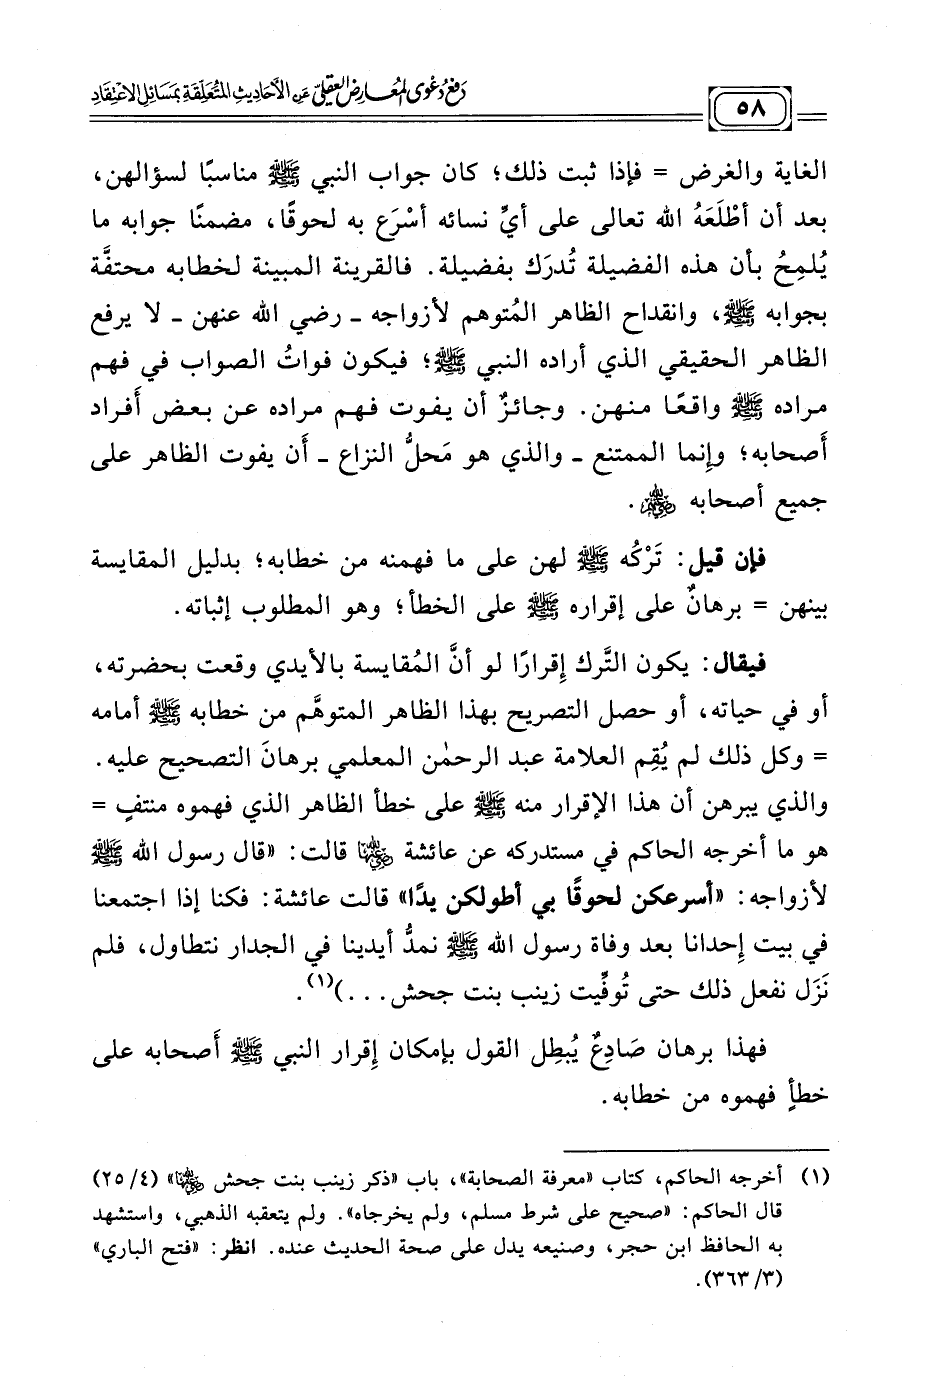 ٥٨
دفع دعوى المعارض العقلي عن الأحاديث المتعلقة بمسائل الاعتقاد
الغاية والغرض = فإذا ثبت ذلك؛ كان جواب النبي ﷺ مناسبًا لسؤالهن،
بعد أن أطْلَعَهُ الله تعالى على أيِّ نسائه أسْرَع به لحوقًا، مضمنًا جوابه ما
يُلمِحُ بأن هذه الفضيلة تُدرَك بفضيلة. فالقرينة المبينة لخطابه محتفَّة
بجوابه ﷺ، وانقداح الظاهر المُتوهم لأزواجه ـ رضي الله عنهن ـ لا يرفع
الظاهر الحقيقي الذي أراده النبي ﷺ؛ فيكون فواتُ الصواب في فهم
مراده ﷺ واقعًا منهن. وجائزٌ أن يفوت فهم مراده عن بعض أَفراد
أَصحابه؛ وإنما الممتنع ـ والذي هو مَحلُّ النزاع ـ أَن يفوت الظاهر على
جميع أصحابه ﵃.
فإن قيل: تَرْكُه ﷺ لهن على ما فهمنه من خطابه؛ بدليل المقايسة
بينهن = برهانٌ على إقراره ﷺ على الخطأ؛ وهو المطلوب إثباته.
فيقال: يكون التَّرك إقرارًا لو أنَّ المُقايسة بالأيدي وقعت بحضرته،
أو في حياته، أو حصل التصريح بهذا الظاهر المتوهَّم من خطابه ﷺ أمامه
= وكل ذلك لم يُقِم العلامة عبد الرحمٰن المعلمي برهانَ التصحيح عليه.
والذي يبرهن أن هذا الإقرار منه ﷺ على خطأ الظاهر الذي فهموه منتفٍ =
هو ما أخرجه الحاكم في مستدركه عن عائشة ﵂ قالت: «قال رسول الله ﷺ
لأزواجه: «أسرعكن لحوقًا بي أطولكن يدًا» قالت عائشة: فكنا إذا اجتمعنا
في بيت إحدانا بعد وفاة رسول الله ﷺ نمدُّ أيدينا في الجدار نتطاول، فلم
نَزَل نفعل ذلك حتى تُوفِّيت زينب بنت جحش...)(١).
فهذا برهان صَادِعٌ يُبطِل القول بإمكان إقرار النبي ﷺ أَصحابه على
خطأٍ فهموه من خطابه.
(١) أخرجه الحاكم، كتاب «معرفة الصحابة»، باب «ذكر زينب بنت جحش ﵂» (٢٥/٤)
قال الحاكم: «صحيح على شرط مسلم، ولم يخرجاه». ولم يتعقبه الذهبي، واستشهد
به الحافظ ابن حجر، وصنيعه يدل على صحة الحديث عنده. انظر: «فتح الباري»
(٣/ ٣٦٣).